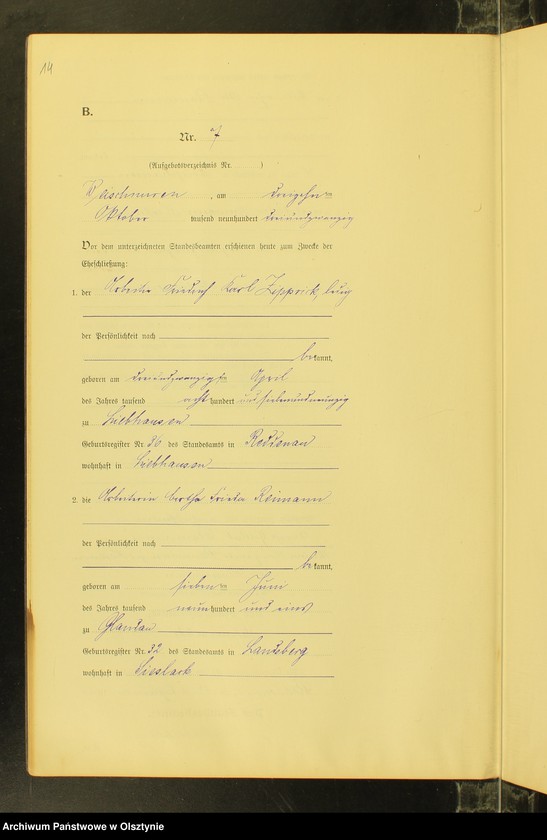 14
B.
Nr. 7
(Aufgebotsverzeichnis Nr. )
, am dreizehn ten
Oktober tausend neunhundert dreiundzwanzig
Vor dem unterzeichneten Standesbeamten erschienen heute zum Zwecke der
Eheschließung:
1. der Arbeiter Friedrich Karl Zepprick, ledig
der Persönlichkeit nach
be kannt,
geboren am dreiundzwanzigsten April
des Jahres tausend acht hundert und siebenundneunzig
zu Liebhausen
Geburtsregister Nr. 26 des Standesamts in Reddenau
wohnhaft in Liebhausen
2. die Arbeiterin Bertha Frieda Reimann
der Persönlichkeit nach
be kannt,
geboren am sieben ten Juni
des Jahres tausend neun hundert und eins
zu Glandau
Geburtsregister Nr. 32 des Standesamts in Landsberg
wohnhaft in
Archiwum Państwowe w Olsztynie